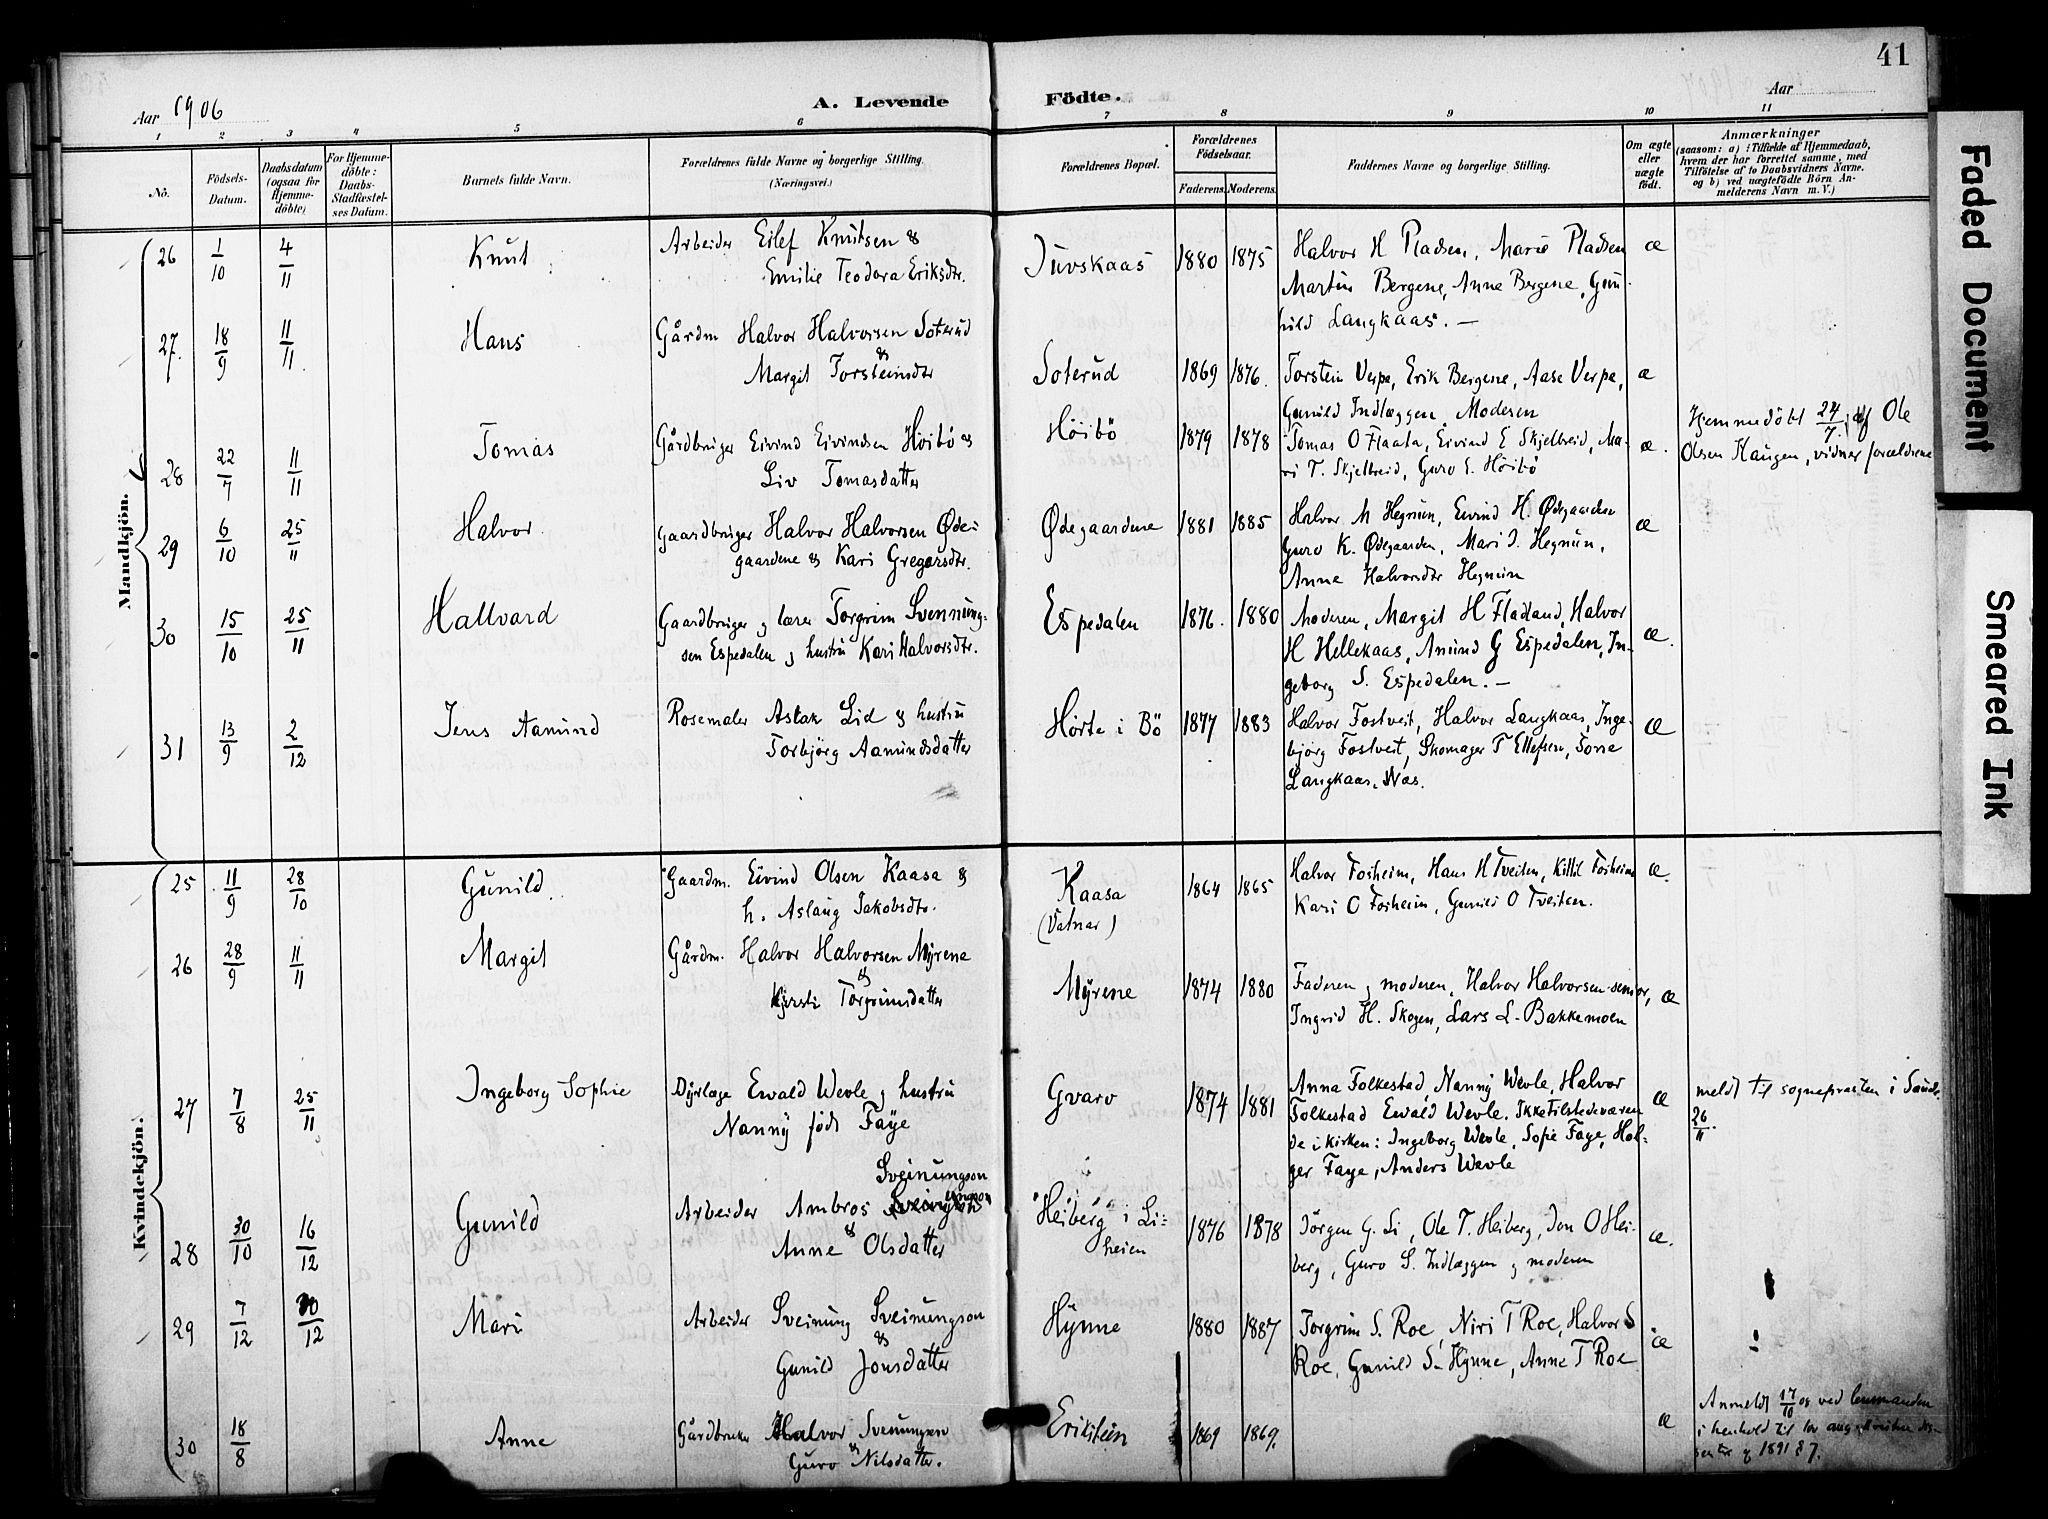 41
Aar 1906
A. Levende Födte.
Aar
1 2 3 4 5 6 7 8 9 10 11
No.
Födsels-Datum.
Daabsdatum (ogsaa for Hjemme-döbte)
For Hjemme-döbte: Daabs-Stadfæstel-ses Datum.
Barnets fulde Navn.
Forældrenes fulde Navne og borgerlige Stilling. (Næringsvei.)
Forældrenes Bopæl.
Forældrenes Födselsaar.
Faderens. Moderens.
Faddernes Navne og borgerlige Stilling.
Om ægte eller uægte födt.
Anmærkninger
(saasom: a) i Tilfælde af Hjemmedaab,
hvem der har forrettet samme, med
Tilföielse af to Daabsvidners Navne.
og b) ved uægtefödte Börn An-
melderens Navn m. V.)
Mandkjön.
26 1/10 4/11 Knut Arbeider Eilef Knutsen &
Emilie Teodora Eriksdtr. Juvskaas 1880 1875 Halvor H Pladsen, Marie Pladsen
Martin Bergene, Anne Bergene, Gun-
hild Langkaas. — æ
27. 18/9 11/11 Hans Gårdm Halvor Halvorsen Soterud
&
Margit Torsteinsdtr Soterud 1869 1876. Torstein Verpe, Erik Bergene, Aase Verpe,
Gunild Indlæggen, Moderen æ
28 22/7 11/11 Tomas Gårdbruger Eivind Eivindsen Höibö &
Liv Tomasdatter Höibö 1879 1878 Tomas O Flaata, Eivind E Skjelbreid, Ma-
ri T. Skjelbreid, Guro E. Höibö æ. Hjemmedöbt 24/7 af Ole
Olsen Haugen, vidner forældrene
29 6/10 25/11 Halvor Gaardbruger Halvor Halvorsen Øde-
gaardene & Kari Gregarsdtr. Ødegaardene 1881 1885 Halvor M Hegnun, Eivind H. Ødegaarden
Guro K. Ødegaarden, Mari J. Hegnun,
Anne Halvorsdtr Hegnun æ
30 15/10 25/11 Hallvard Gaardbruger g lærer Torgrim Svennung-
sen Espedalen g hustru Kari Halvorsdtr. Espedalen 1876. 1880 Moderen, Margit H Fladland, Halvor
H Hellekaas, Amund G Espedalen, In-
geborg S. Espedalen. — æ.
31 13/9 2/12 Jens Aamund Rosemaler Aslak Lid & hustru
Torbjörg Aamundsdatter Hørte i Bö 1877 1883 Halvor Fostveit, Halvor Langkaas, Inge-
bjørg Fostveit, Skomager T Ellefsen, Tone
Langkaas, Næs. æ
Kvindekjön.
25 11/9 28/10 Gunild. Gaardm. Eivind Olsen Kaasa &
h. Aslaug Jakobsdtr. Kaasa
(Vatnar) 1864 1865 Halvor Fosheim, Hans H Tveiten, Kittil Fosheim
Kari O Fosheim, Gunild O Tveiten. æ.
26 28/9 11/11 Margit Gårdm. Halvor Halvorsen Myrene
&
Kjersti Torgrimsdatter Myrene 1874 1880 Faderen g moderen, Halvor Halvorsen senior,
Ingrid H. Skogen, Lars L. Bakkemoen æ
27 7/8 25/11 Ingeborg Sophie Dyrlæge Ewald Wevle g hustru
Nanny född Faye Gvarv 1874 1881 Anna Folkestad, Nanny Wevle, Halvor
Folkestad Ewald Wevle. Ikke tilstedeværen
de i kirken: Ingeborg Wevle, Sofie Faye, Hol-
ger Faye, Anders Wevle æ meldt til sognepræsten i Saude.
26/11.
28 30/10 16/12 Gunild Sveinungson
Arbeider Ambros
&
Anne Olsdatter Heiberg i Li-
heien 1876 1878 Jörgen G. Li, Ole T. Heiberg, Jon O Hei-
berg, Guro S. Indlæggen g moderen æ.
29 7/12 30/12 Mari Arbeider Sveinung Sveinungson
&
Gunild Jonsdatter Hynne 1880 1887 Torgrim S. Roe, Niri T Roe, Halvor S
Roe, Gunild S- Hynne, Anne T Roe æ
30 18/8 Anne Gårdbruker Halvor Sveinungsen
&
Guro Nilsdatter. Erikstein 1869 1869. æ Anmeldt 17/10 06 ved lensmanden
i henhold til lov ang. kristne dis-
senter g 1891 § 7.
Faded Document
Smeared Ink